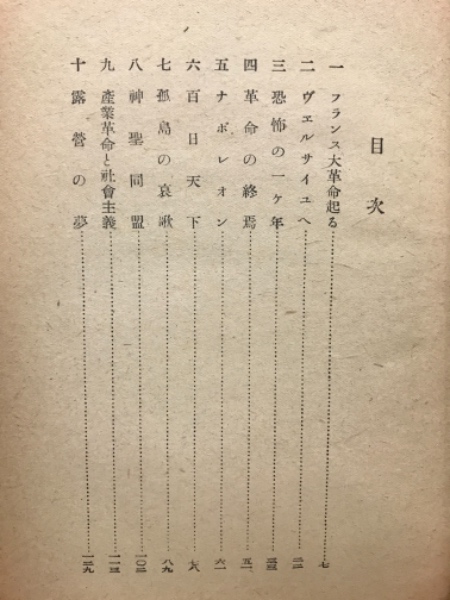 目次
一 フランス大革命起る……七
二 ヴエルサイユへ……二二
三 恐怖の一ケ年……三三
四 革命の終焉……五一
五 ナポレオン……六一
六 百日天下……七八
七 孤島の哀歌……八九
八 神聖同盟……一〇二
九 產業革命と社會主義……一一三
十 露營の夢……一二九